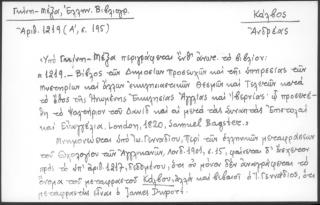 Γκίνη-Μέξα, Ἑλλην. Βιβλιογρ.
Κάλβος
Ἀριθ. 1219 (Α', σ. 195)
Ἀνδρέας
«Ὑπὸ Γκίνη-Μέξα περιγράφεται ὑπ' ἀριθ. τὸ βιβλίον:
«1219.- Βίβλος τῶν Δημοσίων Προσευχῶν καὶ τῆς ὑπηρεσίας τῶν
Μυστηρίων καὶ ἄλλων ἐκκλησιαστικῶν Θεσμῶν καὶ Τελετῶν κατὰ
τὸ ἔθος τῆς Ἡνωμένης Ἐκκλησίας Ἀγγλίας καὶ Ἰβερνίας· ᾧ προσετέ-
θη τὸ Ψαλτήριον τοῦ Δαυὶδ καὶ αἱ μετὰ τὰς συναπτὰς Ἐπιστολαὶ
καὶ Εὐαγγέλια. London, 1820, Samuel Bagster.»
Μνημονεύεται ὑπὸ Ἰω. Γενναδίου, Περὶ τῶν ἑλληνικῶν μεταφράσεων
τοῦ Εὐχολογίου τῶν Ἀγγλικανῶν, Λονδ. 1901, σ. 15, φαίνεται δ' ἄσχετον
πρὸς τὸ ὑπ' ἀριθ. 1217, δεδομένου, ὅτι οὐ μόνον δὲν ἀναγράφεται τὸ
ὄνομα τοῦ μεταφραστοῦ Κάλβου, ἀλλὰ καὶ βεβαιοῖ ὁ Ἰ. Γεννάδιος, ὅτι
μεταφραστὴς εἶναι ὁ James Duport.